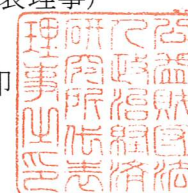 表理事）
印
公益財団法
人政治経済
研究所代表
理事之印